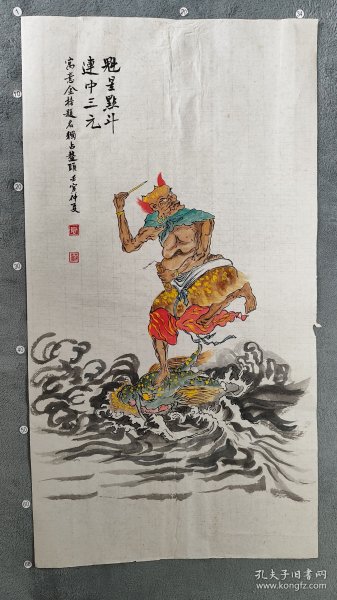 魁星點斗
連中三元
寓意金榜題名獨占鰲頭 壬寅仲夏
孔夫子旧书网